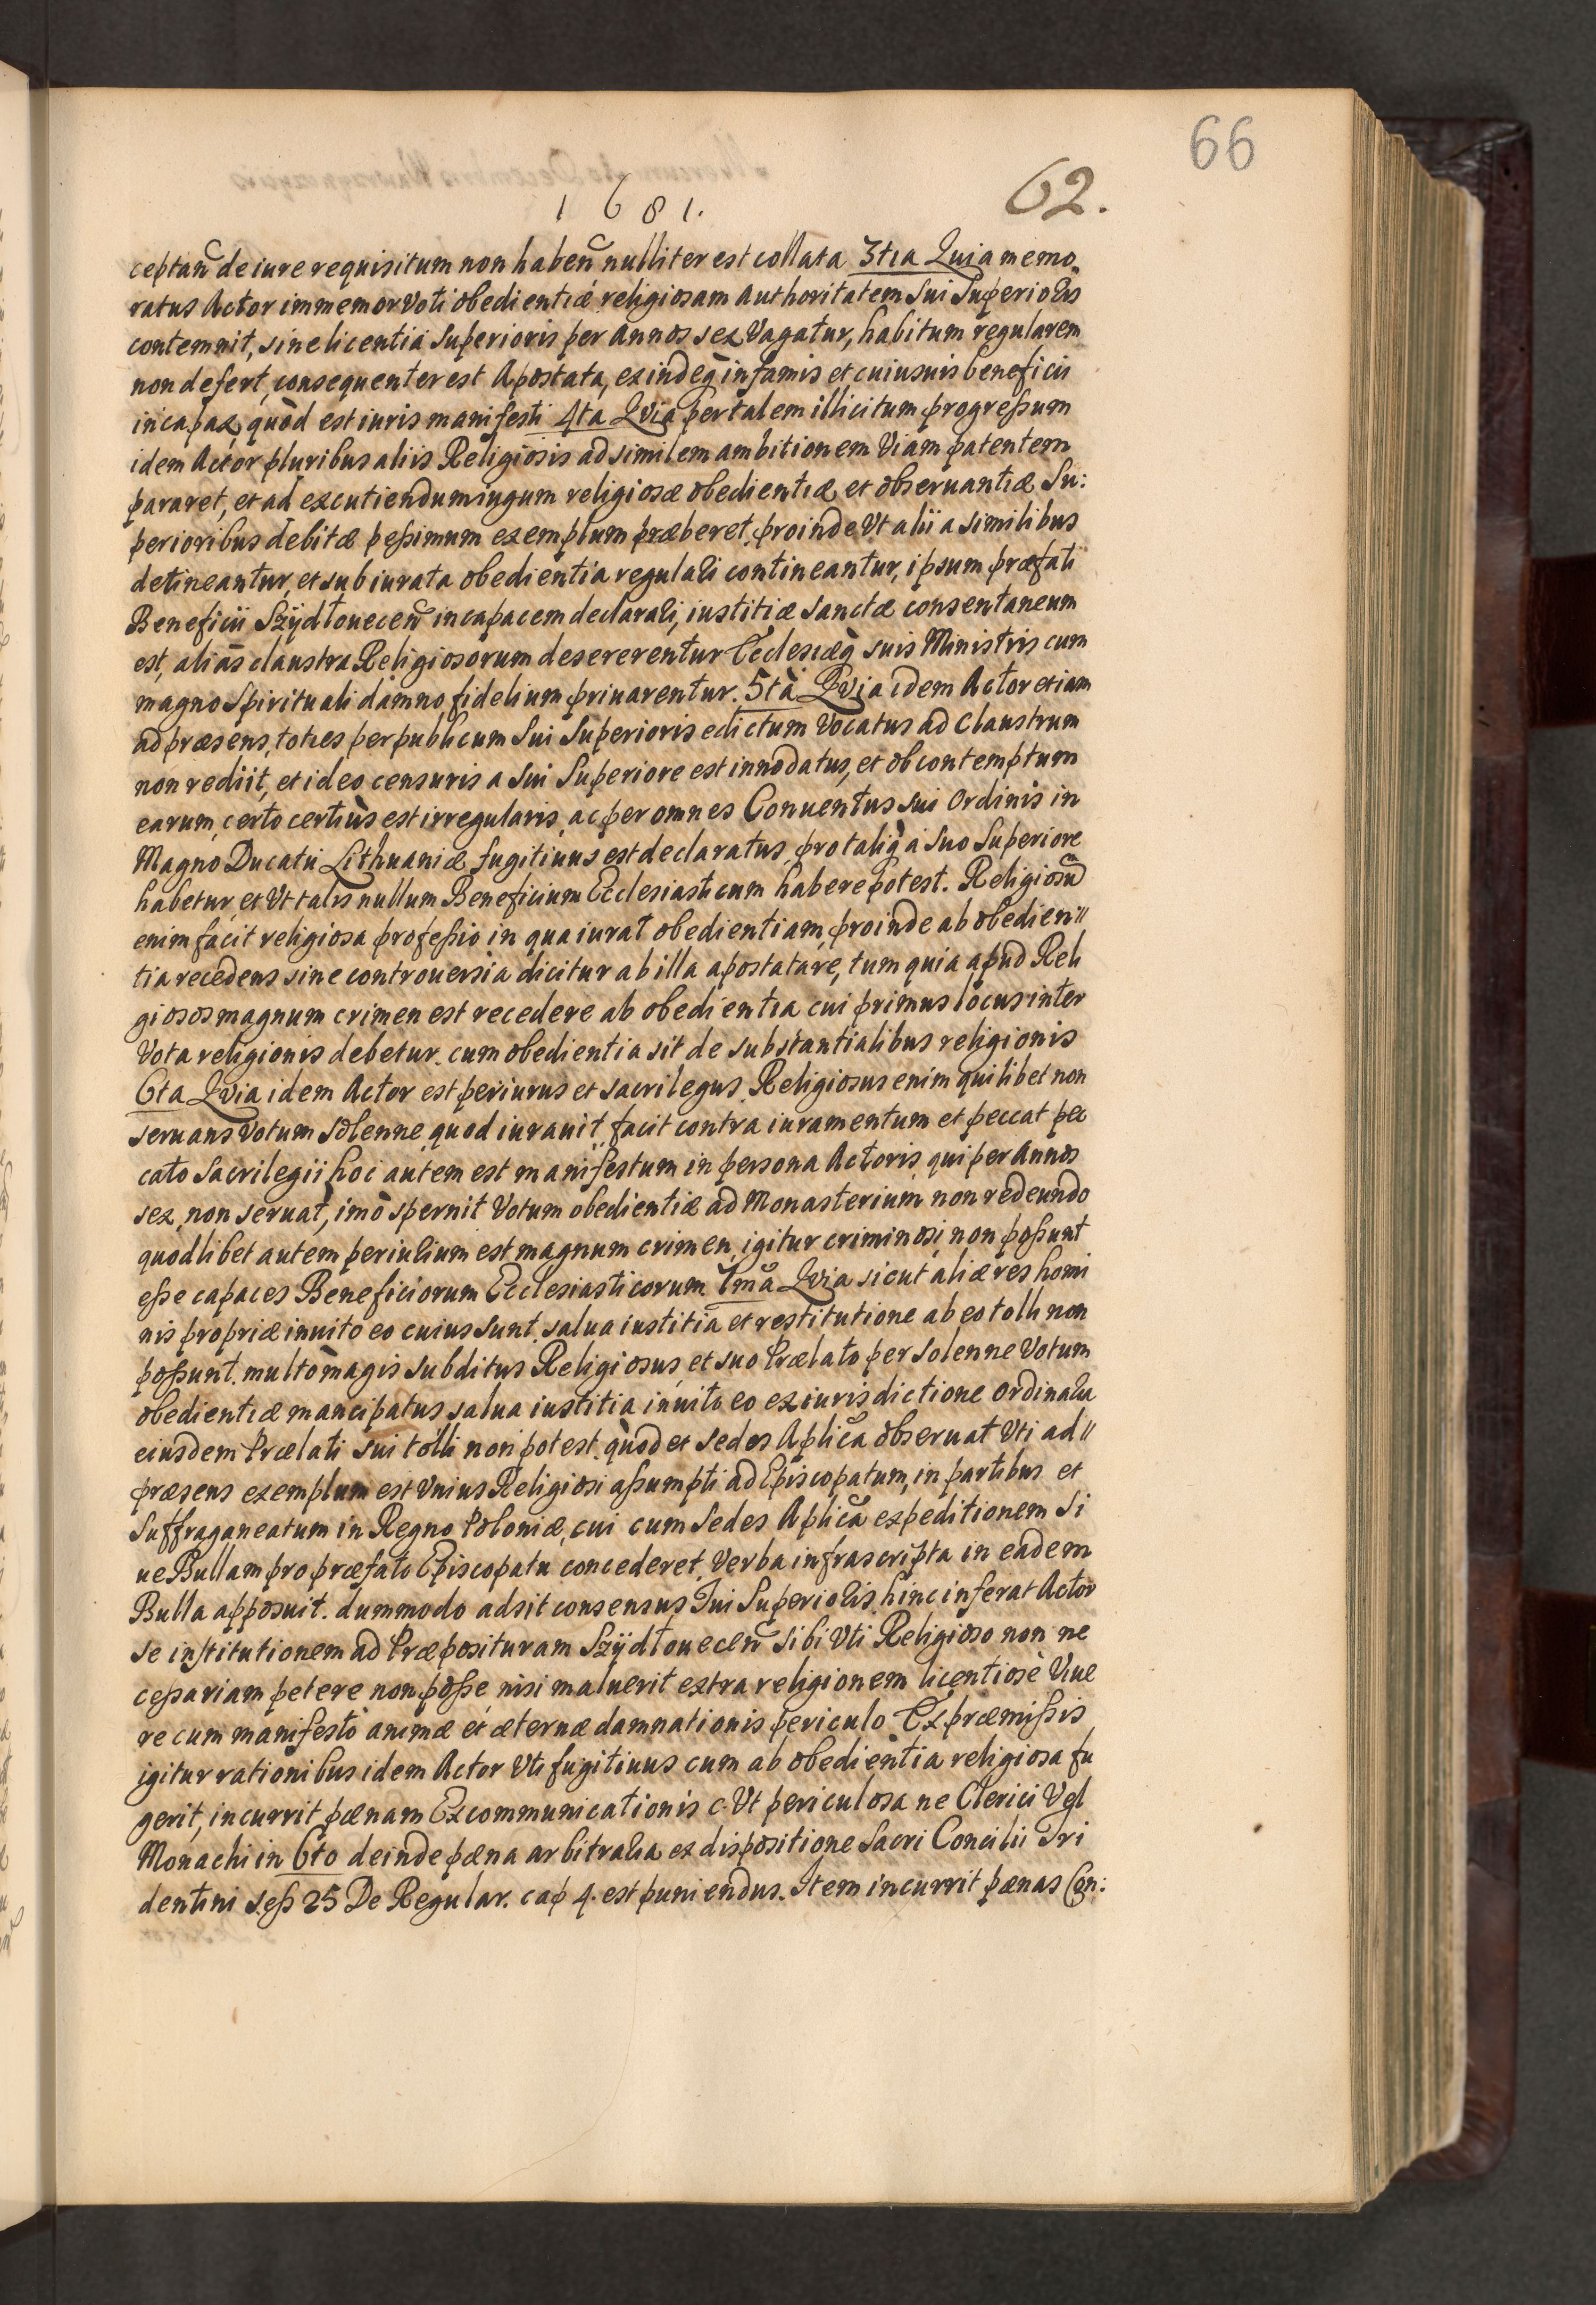 66
62.
1681.
ceptañ de iure requisitum non habeñ nulliter est collata 3tia Quia memo
ratus Actor immemor Voti obedientiæ religiosam Authoritatem Sui Superioris
contemnit, sine licentia Superioris per Annos sex Vagatur, habitum regularem
non defert, consequenter est Apostata, exindeq̀ infamis et cuiusuis beneficii
incapax, quòd est iuris manifesti 4ta Quia per talem illicitum progreßum
idem Actor pluribus aliis Religiosis ad similem ambitionem Viam patentem
pararet, et ad excutiendum iugum religiosæ obedientiæ et obseruantiæ Su:
perioribus debitæ peßimum exemplum præberet. proinde Vt alii a similibus
detineantur, et sub iurata obedientia regulari contineantur, ipsum præfati
Beneficii Szÿdłoueceñ incapacem declarari, iustitiæ Sanctæ consentaneum
est, aliàs claustra Religiosorum desererentur Ecclesiæq̀ suis Ministris cum
magno Spirituali damno fidelium priuarentur. 5tà Quia idem Actor etiam
ad præsens, toties per publicum Sui Superioris edictum Vocatus ad Claustrum
non rediit, et ideo censuris a Sui Superiore est innodatus, et ob contemptum
earum, certo certiùs est irregularis, ac per omnes Conuentus sui Ordinis in
Magno Ducatu Lithuaniæ fugitiuus est declaratus, pro taliq̀ a Suo Superiore
habetur, et Vt talis nullum Beneficium Ecclesiasticum habere potest. Religiosũ
enim facit religiosa profeßio in qua iurat obedientiam, proinde ab obedien〃
tia recedens sine controuersia dicitur ab illa apostatare, tum quia apud Reli
giosos magnum crimen est recedere ab obedientia cui primus locus inter
Vota religionis debetur. cum obedientia sit de substantialibus religionis
6ta Quia idem Actor est periurus et sacrilegus. Religiosus enim quilibet non
seruans Votum Solenne quod iurauit, facit contra iuramentum et peccat pec
cato Sacrilegii hoc autem est manifestum in persona Actoris, qui per Annos
sex, non seruat, imò spernit Votum obedientiæ ad Monasterium non redeundo
quodlibet autem periurium est magnum crimen, igitur criminosi, non poßunt
eße capaces Beneficiorum Ecclesiasticorum 7mã Quia sicut aliæ res homi
nis propriæ inuito eo cuius sunt. salua iustitia et restitutione ab eo tolli non
poßunt. multò magis subditus Religiosus, et suo Prælato per solenne Votum
obedientiæ mancipatus salua iustitia inuito eo ex iurisdictione ordinaria
eiusdem Prælati sui tolli non potest. quòd et Sedes Aplica obseruat Vti ad〃
præsens exemplum est Vnius Religiosi aßumpti ad Episcopatum, in partibus et
Suffraganeatum in Regno Poloniæ, cui cum Sedes Aplica expeditionem Si
ue Bullam pro præfato Episcopatu concederet, Verba infrascripta in eadem
Bulla apposuit. dummodo adsit consensus Sui Superioris. hinc inferat Actor
se institutionem ad Præposituram Szÿdłoueceñ sibi Vti Religioso non ne
ceßariam petere non poße, nisi maluerit extra religionem licentiosè Viue
re cum manifesto animæ et æternæ damnationis periculo Ex præmißis
igitur rationibus idem Actor Vti fugitiuus cum ab obedientia religiosa fu
gerit, incurrit pænam Excommunicationis c. Vt periculosa ne Clerici Vel
Monachi in 6to deinde pæna arbitraria ex dispositione Sacri Concilii Tri
dentini Seß 25 De Regular. cap 4. est puniendus. Item incurrit pænas Con: